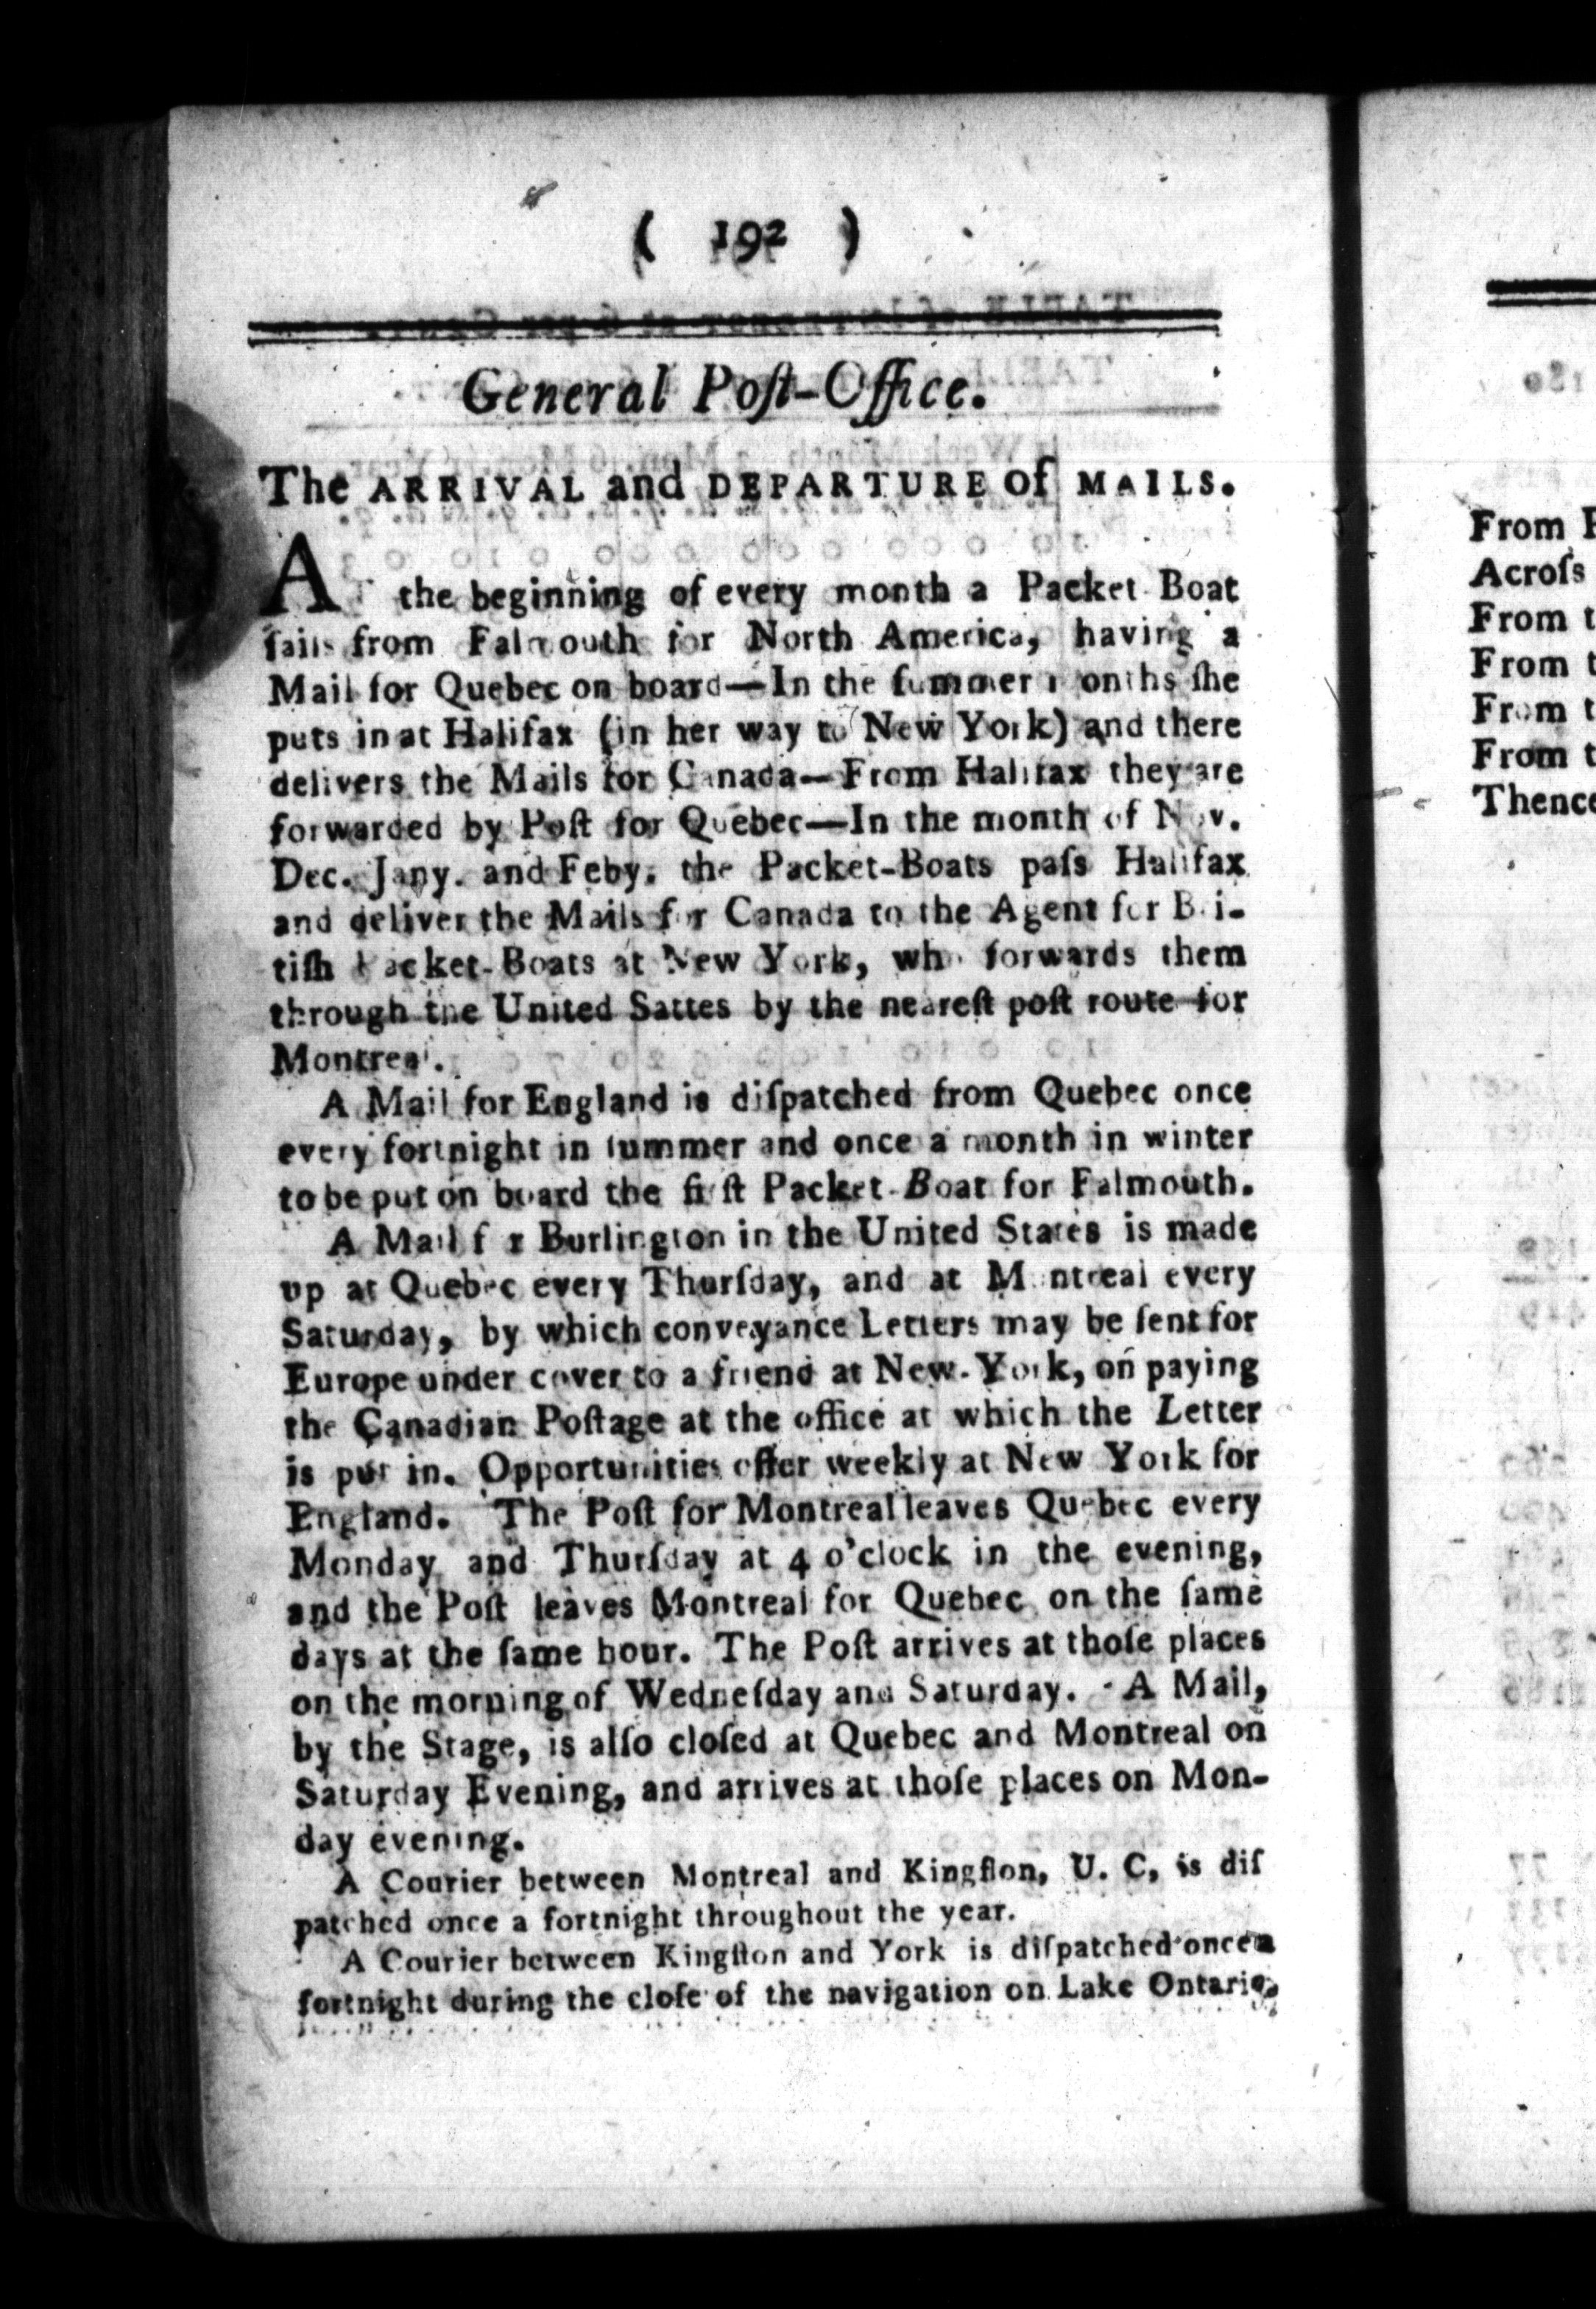 ( 192 )
General Poſt-Office.
The ARRIVAL and DEPARTURE of MAILS.
AT the beginning of every month a Packet Boat
ſails from Falmouth for North America, having a
Mail for Quebec on board—In the ſummer months ſhe
puts in at Halifax (in her way to New York) and there
delivers the Mails for Canada—From Halifax they are
forwarded by Poſt for Quebec—In the month of Nov.
Dec. Jany. and Feby. the Packet-Boats paſs Halifax
and deliver the Mails for Canada to the Agent for Bri-
tiſh Packet-Boats at New York, who forwards them
through the United Sattes by the neareſt poſt route for
Montreal.
A Mail for England is diſpatched from Quebec once
every fortnight in ſummer and once a month in winter
to be put on board the firſt Packet-Boat for Falmouth.
A Mail for Burlington in the United States is made
up at Quebec every Thurſday, and at Montreal every
Saturday, by which conveyance Letters may be ſent for
Europe under cover to a friend at New-York, on paying
the Canadian Poſtage at the office at which the Letter
is put in. Opportunities offer weekly at New York for
England. The Poſt for Montreal leaves Quebec every
Monday and Thurſday at 4 o'clock in the evening,
and the Poſt leaves Montreal for Quebec on the ſame
days at the ſame hour. The Poſt arrives at thoſe places
on the morning of Wedneſday and Saturday. A Mail,
by the Stage, is alſo cloſed at Quebec and Montreal on
Saturday Evening, and arrives at thoſe places on Mon-
day evening.
A Courier between Montreal and Kingſton, U. C, is diſ
patched once a fortnight throughout the year.
A Courier between Kingſton and York is diſpatched once a
fortnight during the cloſe of the navigation on Lake Ontario.
From
Acroſs
From
From
From
From
Thence